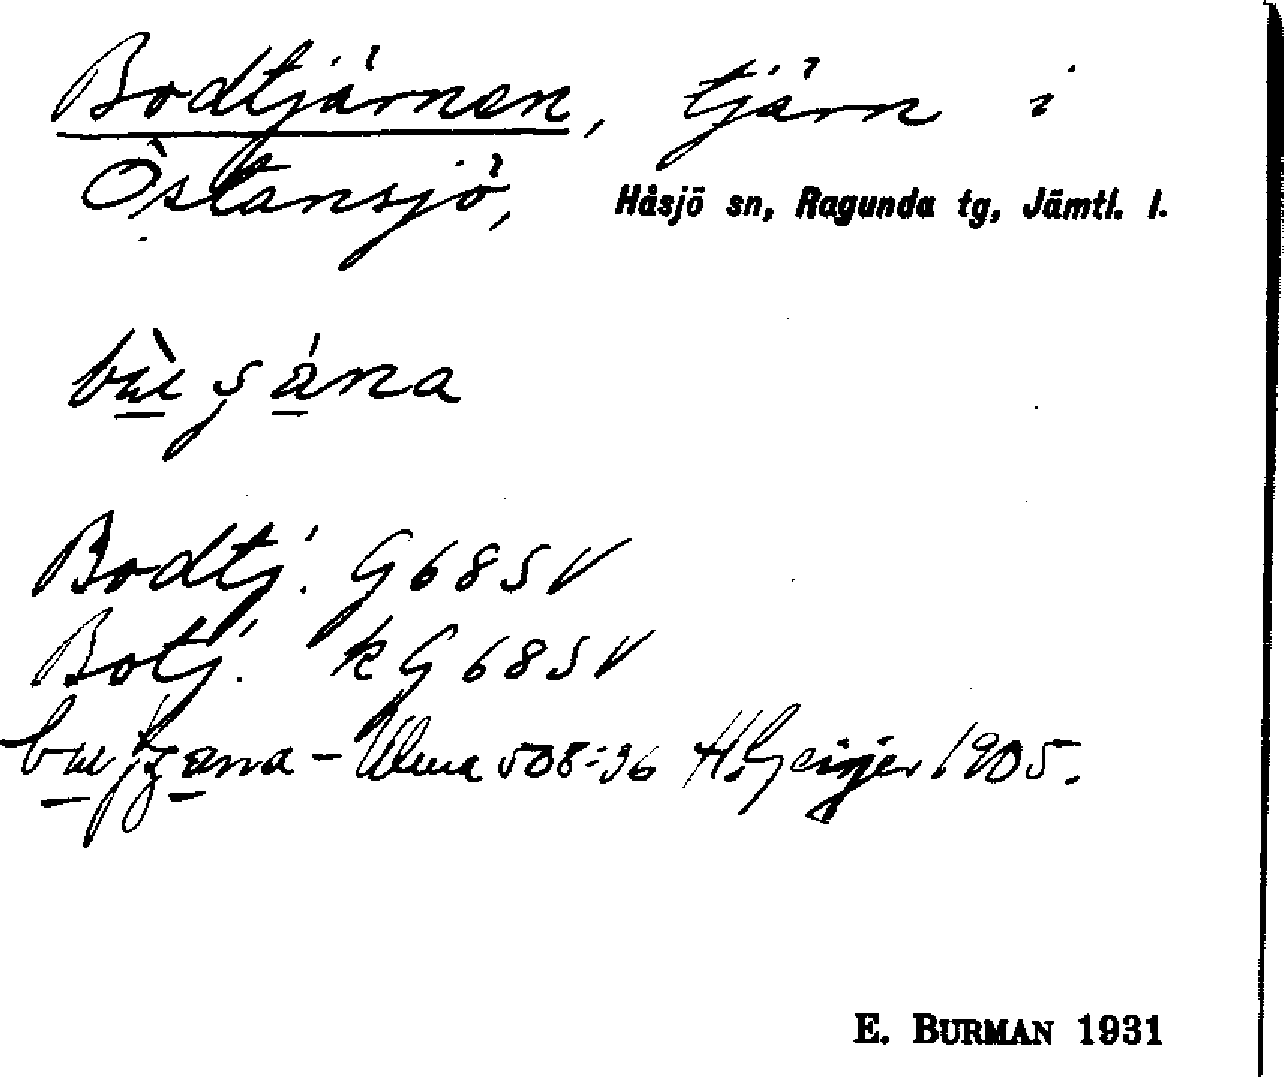 Bodtjärnen, tjärn i
Östansjö, Håsjö sn, Ragunda tg, Jämtl. l.
Bodtj. G 68 S V
Botj. k G 68 S V
Ulma 508:36 H. Geijer 1905.
E. BURMAN 1931